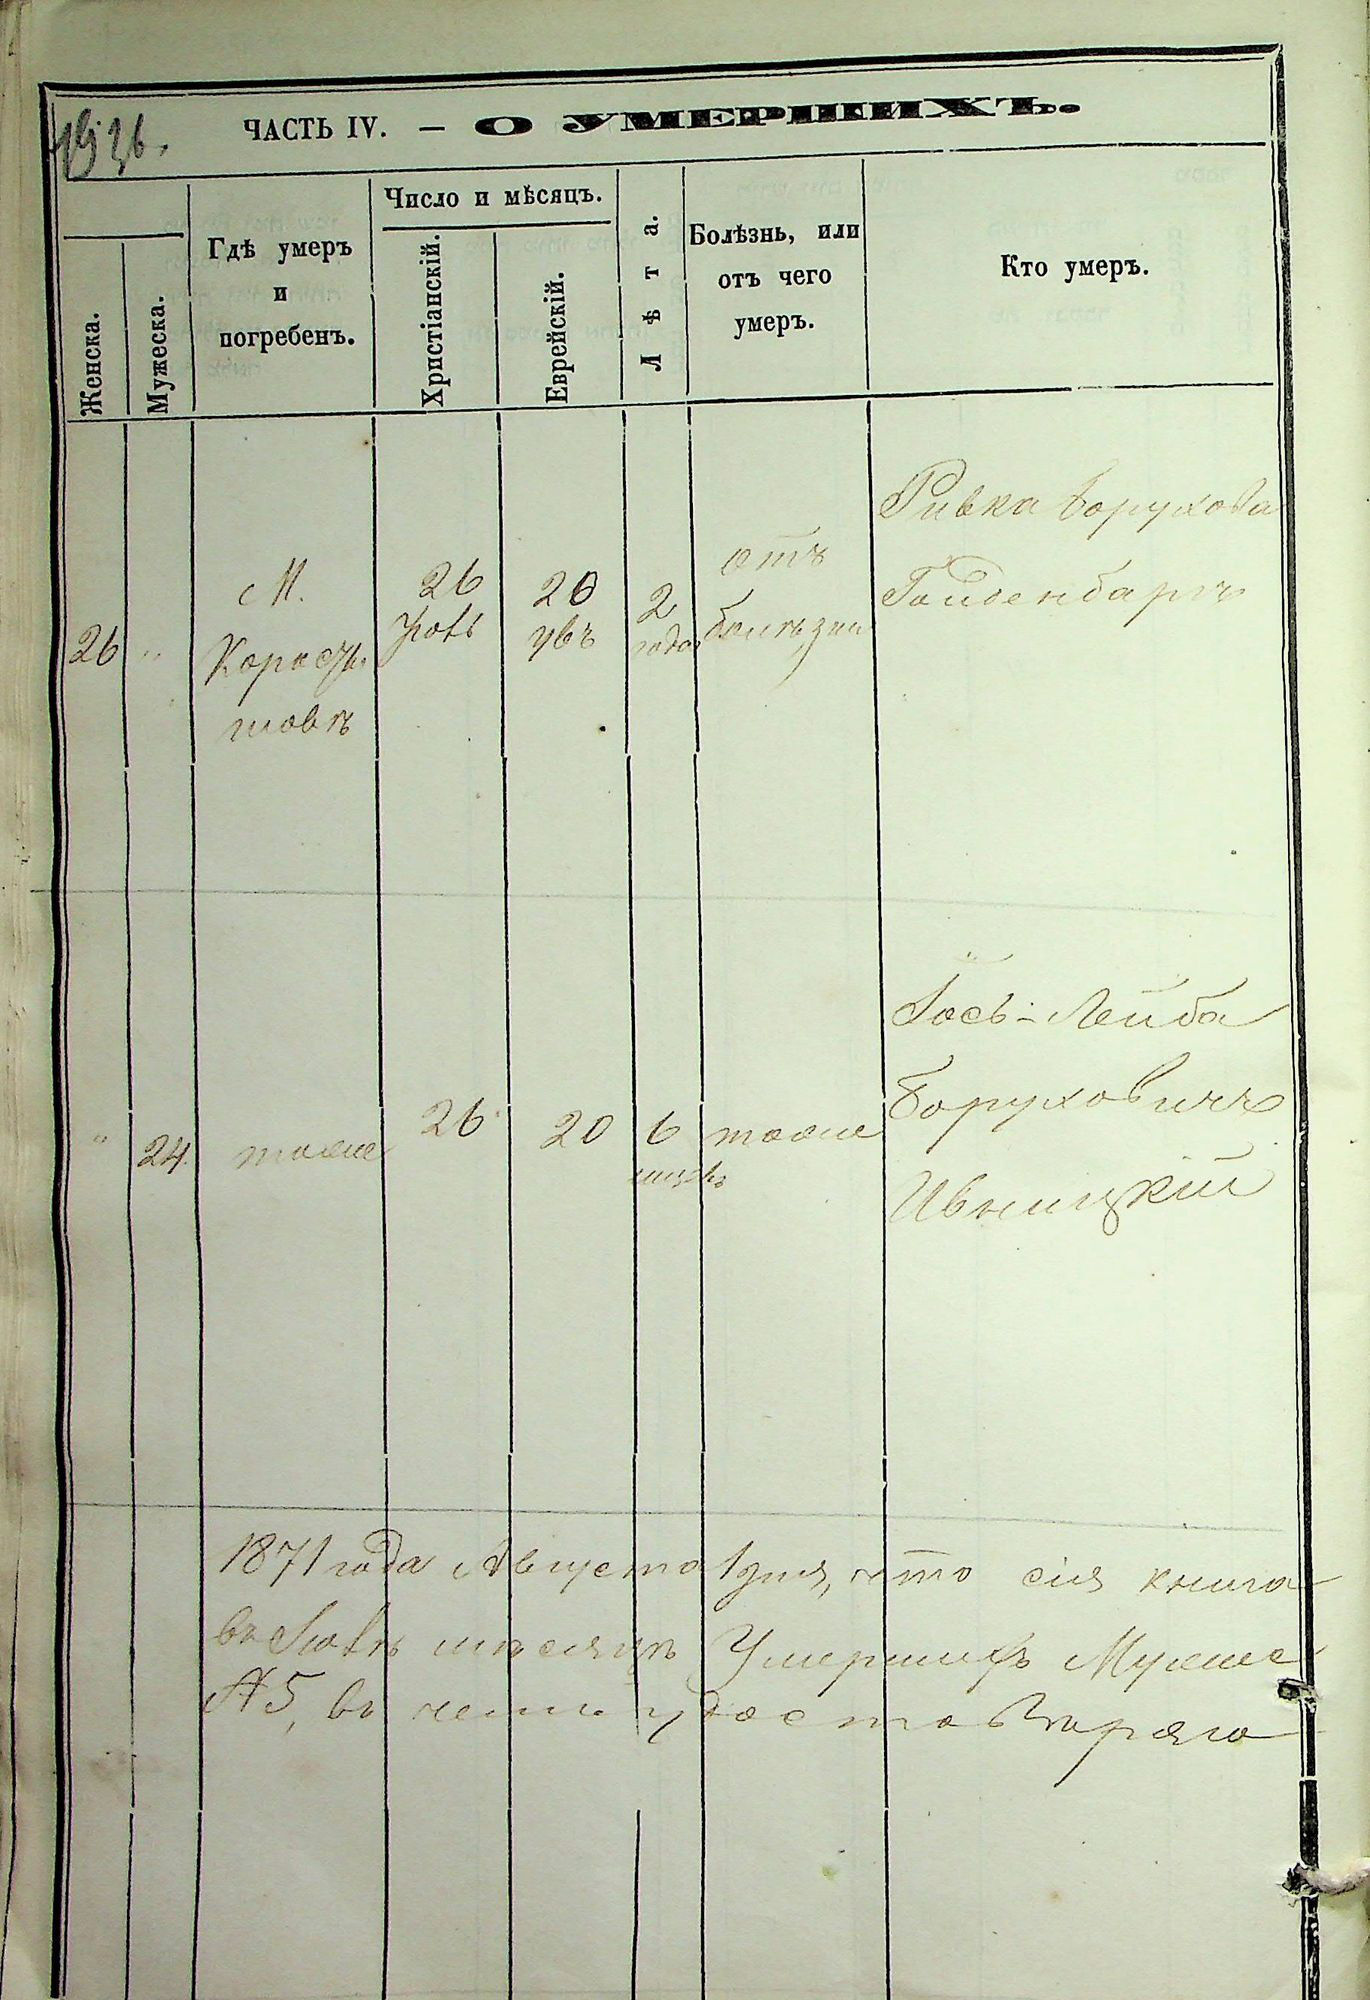 ЧАСТЬ IV. — О УМЕРШИХЪ.
Женска.
Мужеска.
Гдѣ умеръ
и
погребенъ.
Число и мѣсяцъ.
Христіанскій.
Еврейскій.
Лѣта.
Болѣзнь, или
отъ чего
умеръ.
Кто умеръ.
26
"
М.
Коросты
шовѣ
26
20
2
года
отъ
болѣзни
Ривка Борухова
Гольденбаргъ
"
24.
тоже
26
20
6
тоже
Іось-Лейба
Боруховичъ
Ивницкій
1871 года Августа 1 дня, что сія книга
въ мѣсяцѣ Умершихъ Мужес
№ 5, въ чемъ удостоверяю